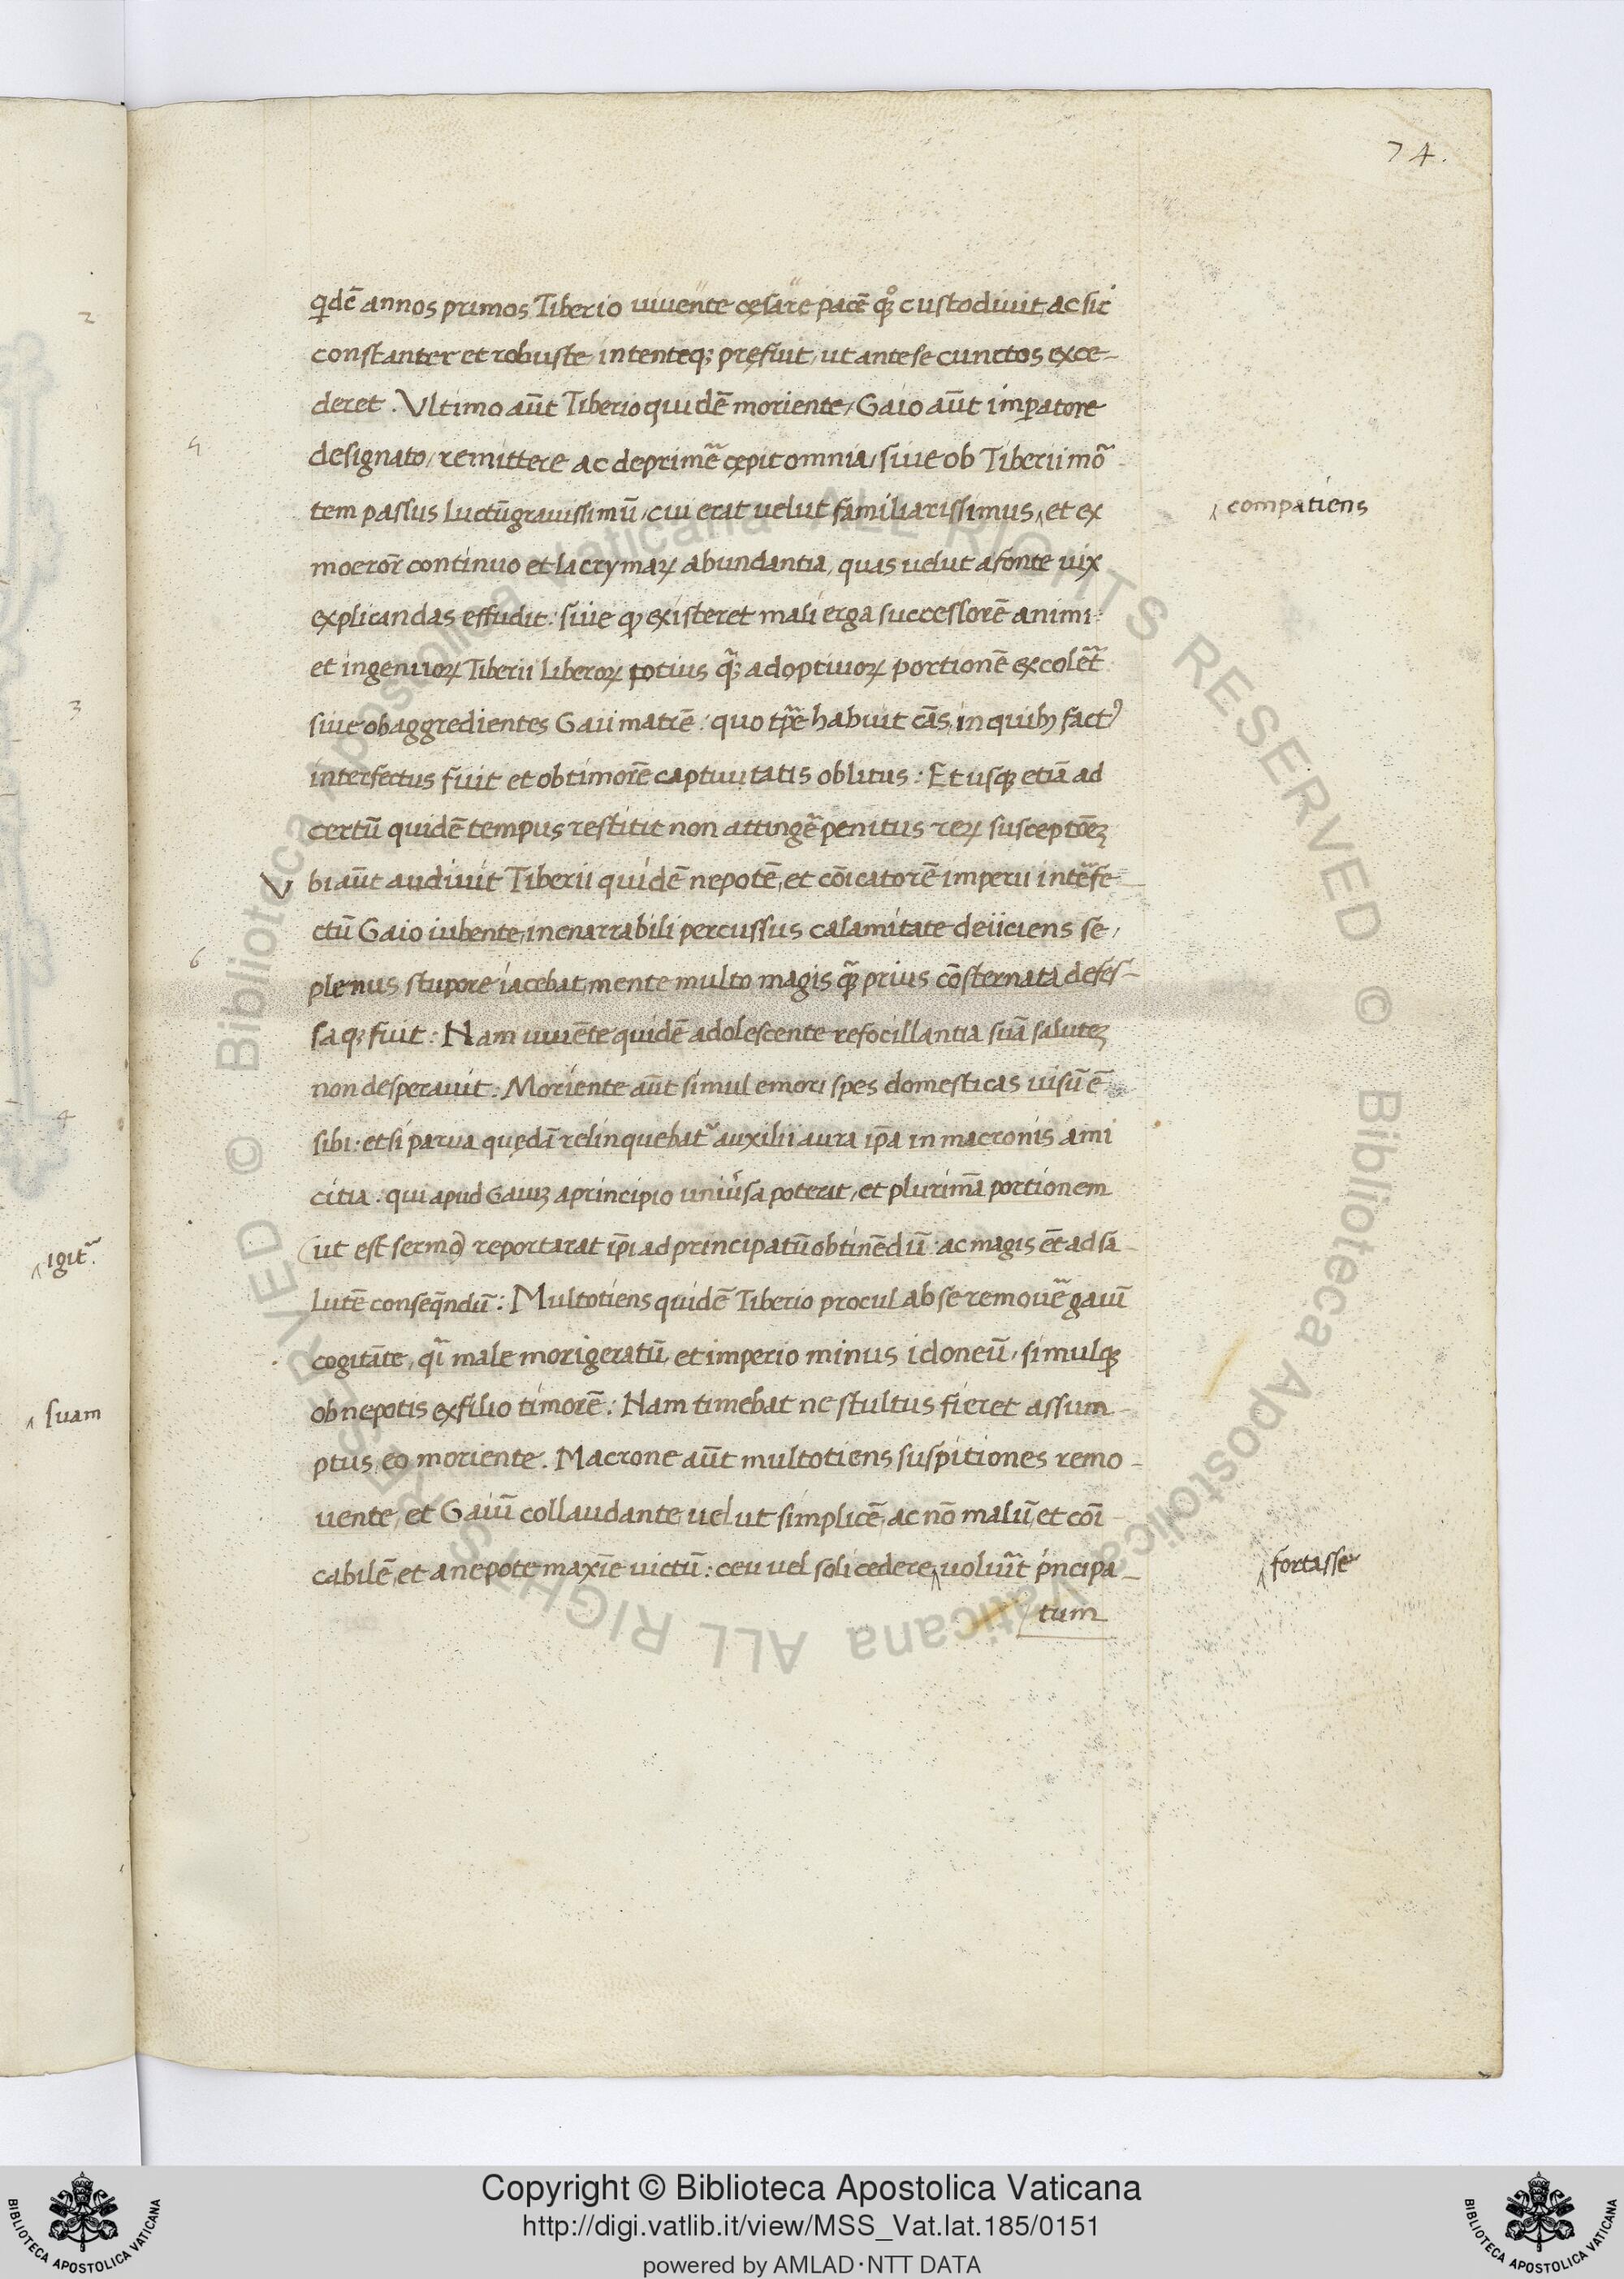 74.
qdē annos primos Tiberio vivente cęsare pacē qͦꝫ custodivit, ac sic
constanter et robuste, intenteqꝫ pręfuit, ut ante se cunctos exce-
deret. Vltimo aūt Tiberio quidē moriente, Gaio aūt impatore
designato, remittere ac deprimē cępit omnia, sive ob Tiberii mō
tem passus luctū gravissimū, cui erat velut familiarissimus, ‸ et ex
‸ compatiens
moeror̄ continuo et lacrymaꝝ abundantia, quas velut a fonte vix
explicandas effudit: sive ꝙ existeret mali erga successorē animi:
et ingenuoꝝ Tiberii liberoꝝ potius q̃ꝫ adoptivoꝝ portionē excolēt
sive ob aggredientes Gaii matrē: quo tp̄re habuit cās, in quibꝫ factꝰ
interfectus fuit et ob timorē captivitatis oblitus: Et usqꝫ etiā ad
certū quidē tempus restitit non attingē penitus reꝝ susceptōeꝫ
Vbi aūt audivit Tiberii quidē nepotē, et cōicatorē imperii intēfe-
ctū Gaio iubente, inenarrabili percussus calamitate deiiciens se,
plenus stupore iacebat, mente multo magis q̃ꝫ prius cōsternata defes-
saqꝫ fuit: Nam vivēte quidē adolescente refocillantia suā saluteꝫ
non desperavit: Moriente aūt simul emori spes domesticas visū ē
sibi: etsi parva quędā relinquebat᷑ auxilii aura ip̄a in macronis ami
citia: qui apud Gaiuꝫ a principio univ̓sa poterit, et plurimā portionem
(ut est sermo) reportarat ip̄i ad principatū obtinēdū: ac magis ēt ad sa-
lutē conseq̄ndū: Multotiens quidē Tiberio procul ab se removē gaiū
cogitāte, q̄i male morigeratū, et imperio minus idoneū, simulqꝫ
ob nepotis ex filio timorē: Nam timebat ne stultus fieret assum-
ptus, eo moriente. Macrone aūt multotiens suspitiones remo-
vente, et Gaiū collaudante, velut simplicē, ac nō malū, et cōi
cabilē, et a nepote maxīe victū: ceu vel soli cedere ‸ voluīt pncipa-
‸ fortasse
tum
2
3
4
‸ igit᷑.
‸ suam
6
Copyright © Biblioteca Apostolica Vaticana
http://digi.vatlib.it/view/MSS_Vat.lat.185/0151
powered by AMLAD·NTT DATA
BIBLIOTECA APOSTOLICA VATICANA
BIBLIOTECA APOSTOLICA VATICANA
© Biblioteca Apostolica Vaticana ALL RIGHTS RESERVED © Biblioteca Apostolica Vaticana ALL RIGHTS RESERVED